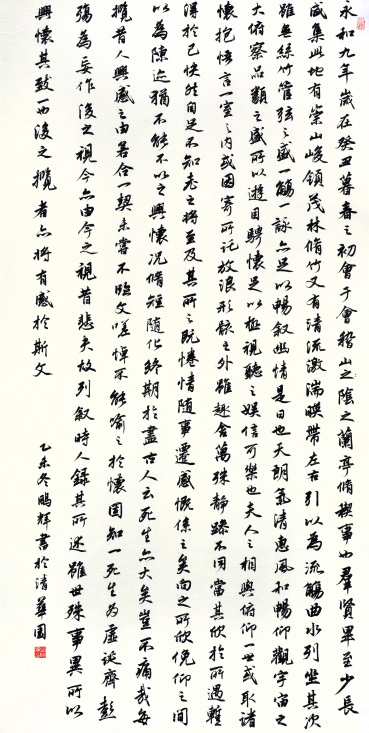 永和九年歲在癸丑暮春之初會于會稽山之陰之蘭亭脩禊事也羣賢畢至少長
咸集此地有崇山峻領茂林脩竹又有清流激湍暎帶左右引以為流觴曲水列坐其次
雖無絲竹管弦之盛一觴一詠亦足以暢敘幽情是日也天朗氣清惠風和暢仰觀宇宙之
大俯察品類之盛所以遊目騁懷足以極視聽之娛信可樂也夫人之相與俯仰一世或取諸
懷抱悟言一室之內或因寄所託放浪形骸之外雖趣舍萬殊靜躁不同當其欣於所遇暫
得於己快然自足不知老之將至及其所之既惓情隨事遷感慨係之矣向之所欣俛仰之間
以為陳迹猶不能不以之興懷況脩短隨化終期於盡古人云死生亦大矣豈不痛哉每
攬昔人興感之由若合一契未嘗不臨文嗟悼不能喻之於懷固知一死生為虛誕齊彭
殤為妄作後之視今亦由今之視昔悲夫故列敘時人錄其所述雖世殊事異所以
興懷其致一也後之攬者亦將有感於斯文
乙未冬鵬輝書於清華園